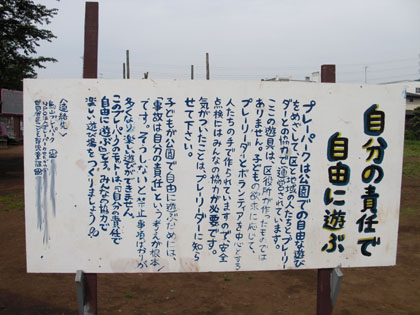 自分の責任で
自由に遊ぶ
プレーパークは公園での自由な遊び
をめざして、区と地域の人たちとプレーリー
ダーとの協力で運営されています。
ここの遊具は、区役所が作ったものでは
ありません。子どもの欲求に応じて、
プレーリーダーとボランティアを中心とする
人たちの手で作られていますので、安全
点検にはみんなの協力が必要です。
気がついたことは、プレーリーダーに知ら
せて下さい。
子どもが公園で自由に遊ぶためには、
「事故は自分の責任」という考えが根本
です。そうしないと禁止事項ばかりが
多くなり、楽しい遊びができません。
このプレーパークのモットーは、「自分の責任で
自由に遊ぶ」です。みんなの協力で
楽しい遊び場をつくりましょう。